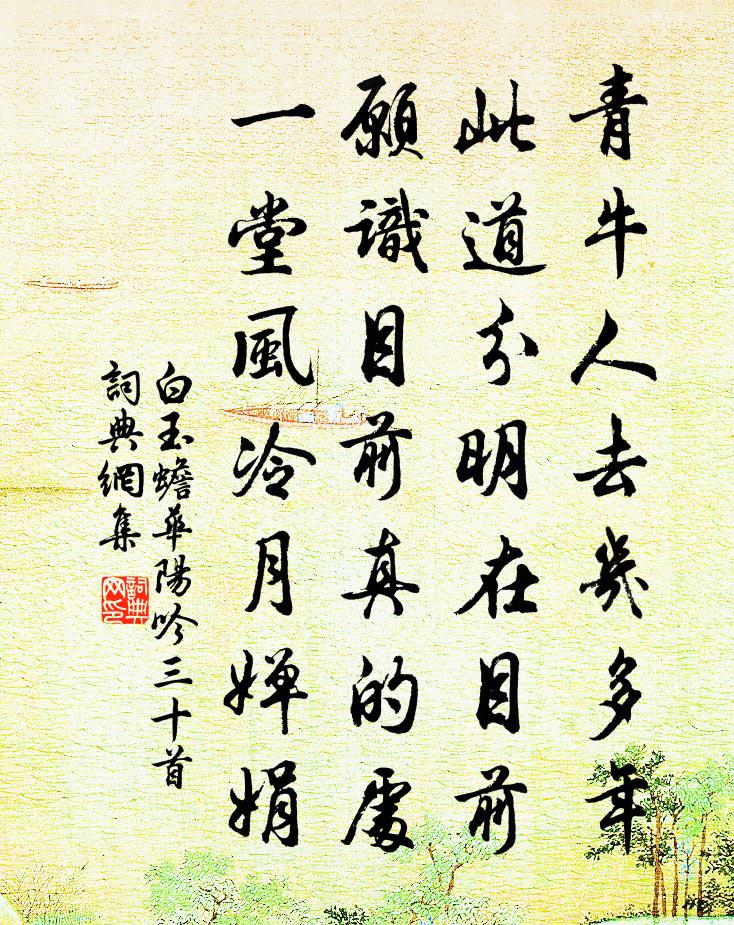 青牛人去幾多年
此道分明在目前
願識目前真的處
一堂風冷月嬋娟
白玉蟾華陽吟三十首
詞典網集
詞典網印